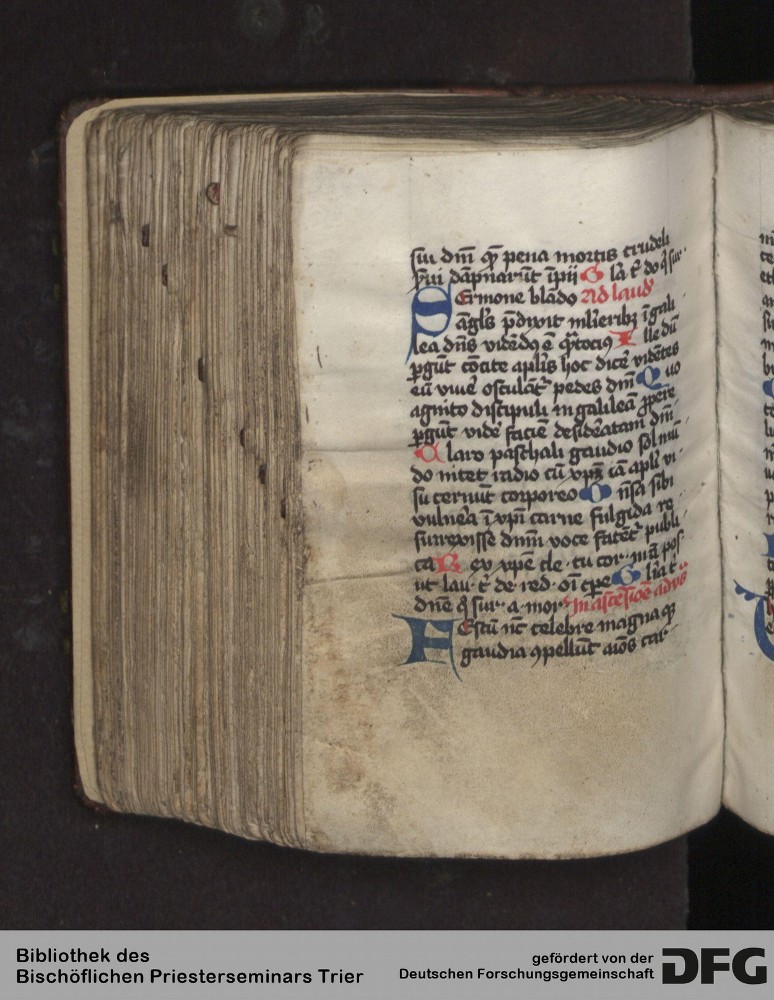 sui dn̄i qͣ pena mortis crudeli
s̄ui dāpnarūt īpii G la t̄ do q̄ sur
Sermone blādo Ad laud
āgl̄s p̄dixit ml̄ieribꝫ ī gali
lea dn̄s vidēdꝯ ē q̄ tociꝯ I lle dū
ꝑgūt cōcite apl̄is hoc dice᷑ vidētes
eū viue᷑ osculāt᷑ pedes dn̄i Q uo
agnito discipuli in galileā ꝓpere
ꝑgūt vide᷑ faciē desideratam dn̄i
C laro paschali gaudio sol mū
do nitet radio cū xp̄ꝫ iā apl̄i vi
su cernūt corporeo O n̄sa sibi
vulnera ī xp̄i carne fulgida re
surrexisse dn̄m voce fatēt᷑ publi
ca R ex xp̄e cle · tu cor · n̄rā pos
ut lau · t᷑ · de · red · oī t̄pe G lia t᷑
dn̄e q̄ sur · a · mor · In ascēsiōe ad vs̄
Festū nc̄ celebre magna qꝫ
gaudia ꝯpellūt aīos car
Bibliothek des
Bischöflichen Priesterseminars Trier
gefördert von der
Deutschen Forschungsgemeinschaft DFG